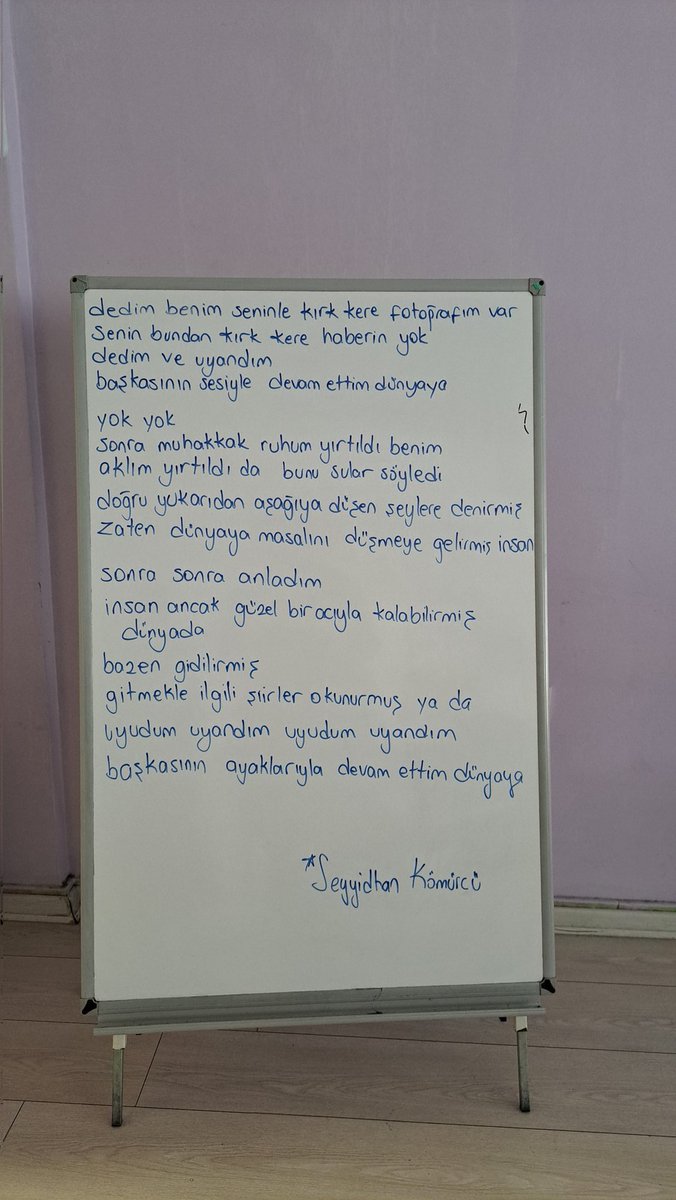 dedim benim seninle kırk kere fotoğrafım var
senin bundan kırk kere haberin yok
dedim ve uyandım
başkasının sesiyle devam ettim dünyaya
yok yok
sonra muhakkak ruhum yırtıldı benim
aklım yırtıldı da bunu sular söyledi
doğru yukarıdan aşağıya düşen şeylere denirmiş
zaten dünyaya masalını düşmeye gelirmiş insan
sonra sonra anladım
insan ancak güzel bir acıyla kalabilirmiş
dünyada
bazen gidilirmiş
gitmekle ilgili şiirler okunurmuş ya da
uyudum uyandım uyudum uyandım
başkasının ayaklarıyla devam ettim dünyaya
*Seyyidhan Kömürcü